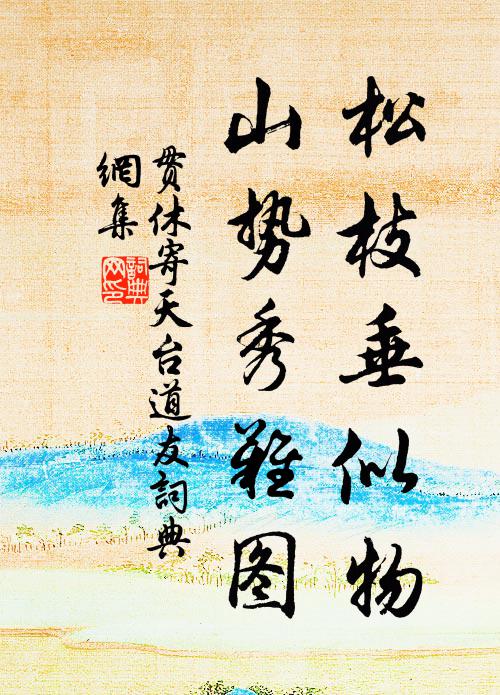 松枝垂似物
山势秀难图
贯休寄天台道友詞典
網集
詞典
网印